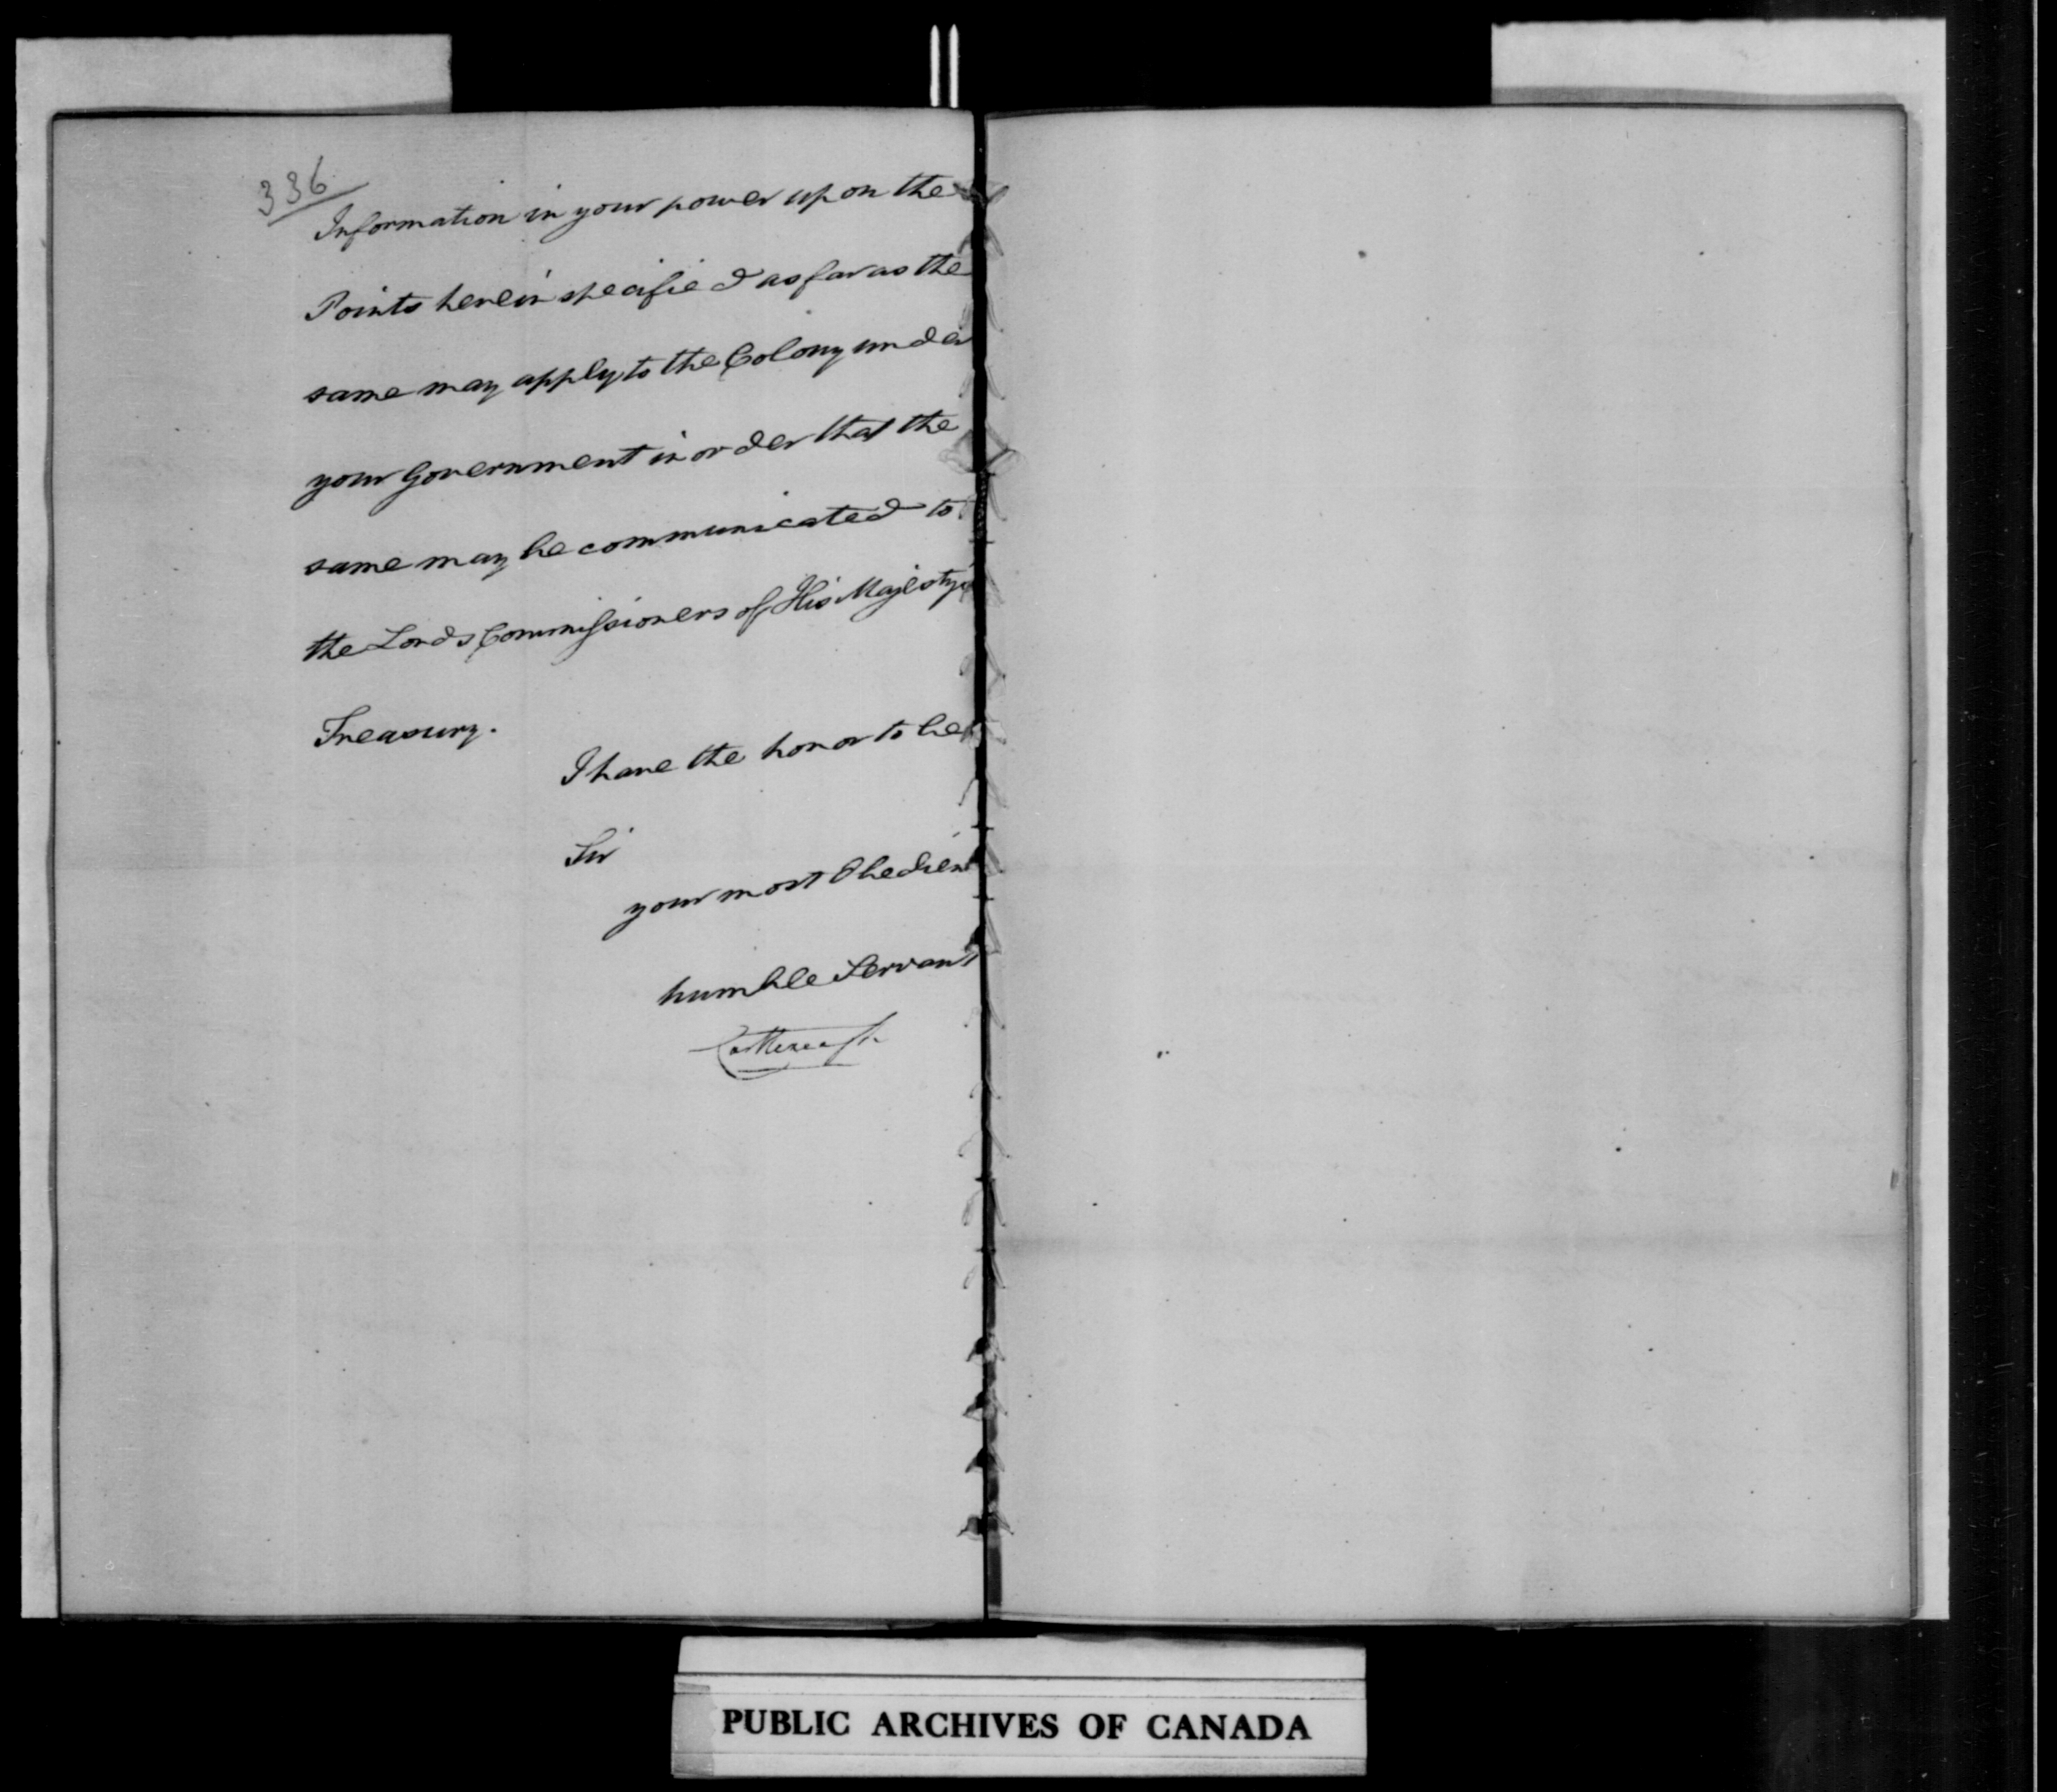 336
Information in your power upon the
Points herein specified as far as the
same may apply to the Colony under
your Government in order that the
same may be communicated to
the Lords Commissioners of His Majesty's
Treasury.
I have the honor to be
Sir
your most Obedient
humble Servant
Castlereagh
PUBLIC ARCHIVES OF CANADA